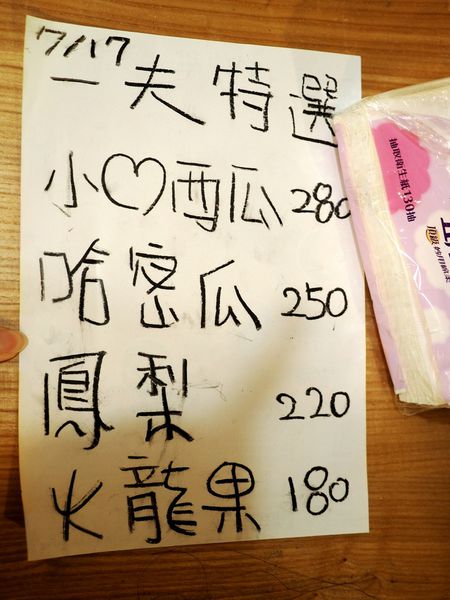 7/17
一夫特選
小♡西瓜 280
哈密瓜 250
鳳梨 220
火龍果 180
抽取衛生紙130抽